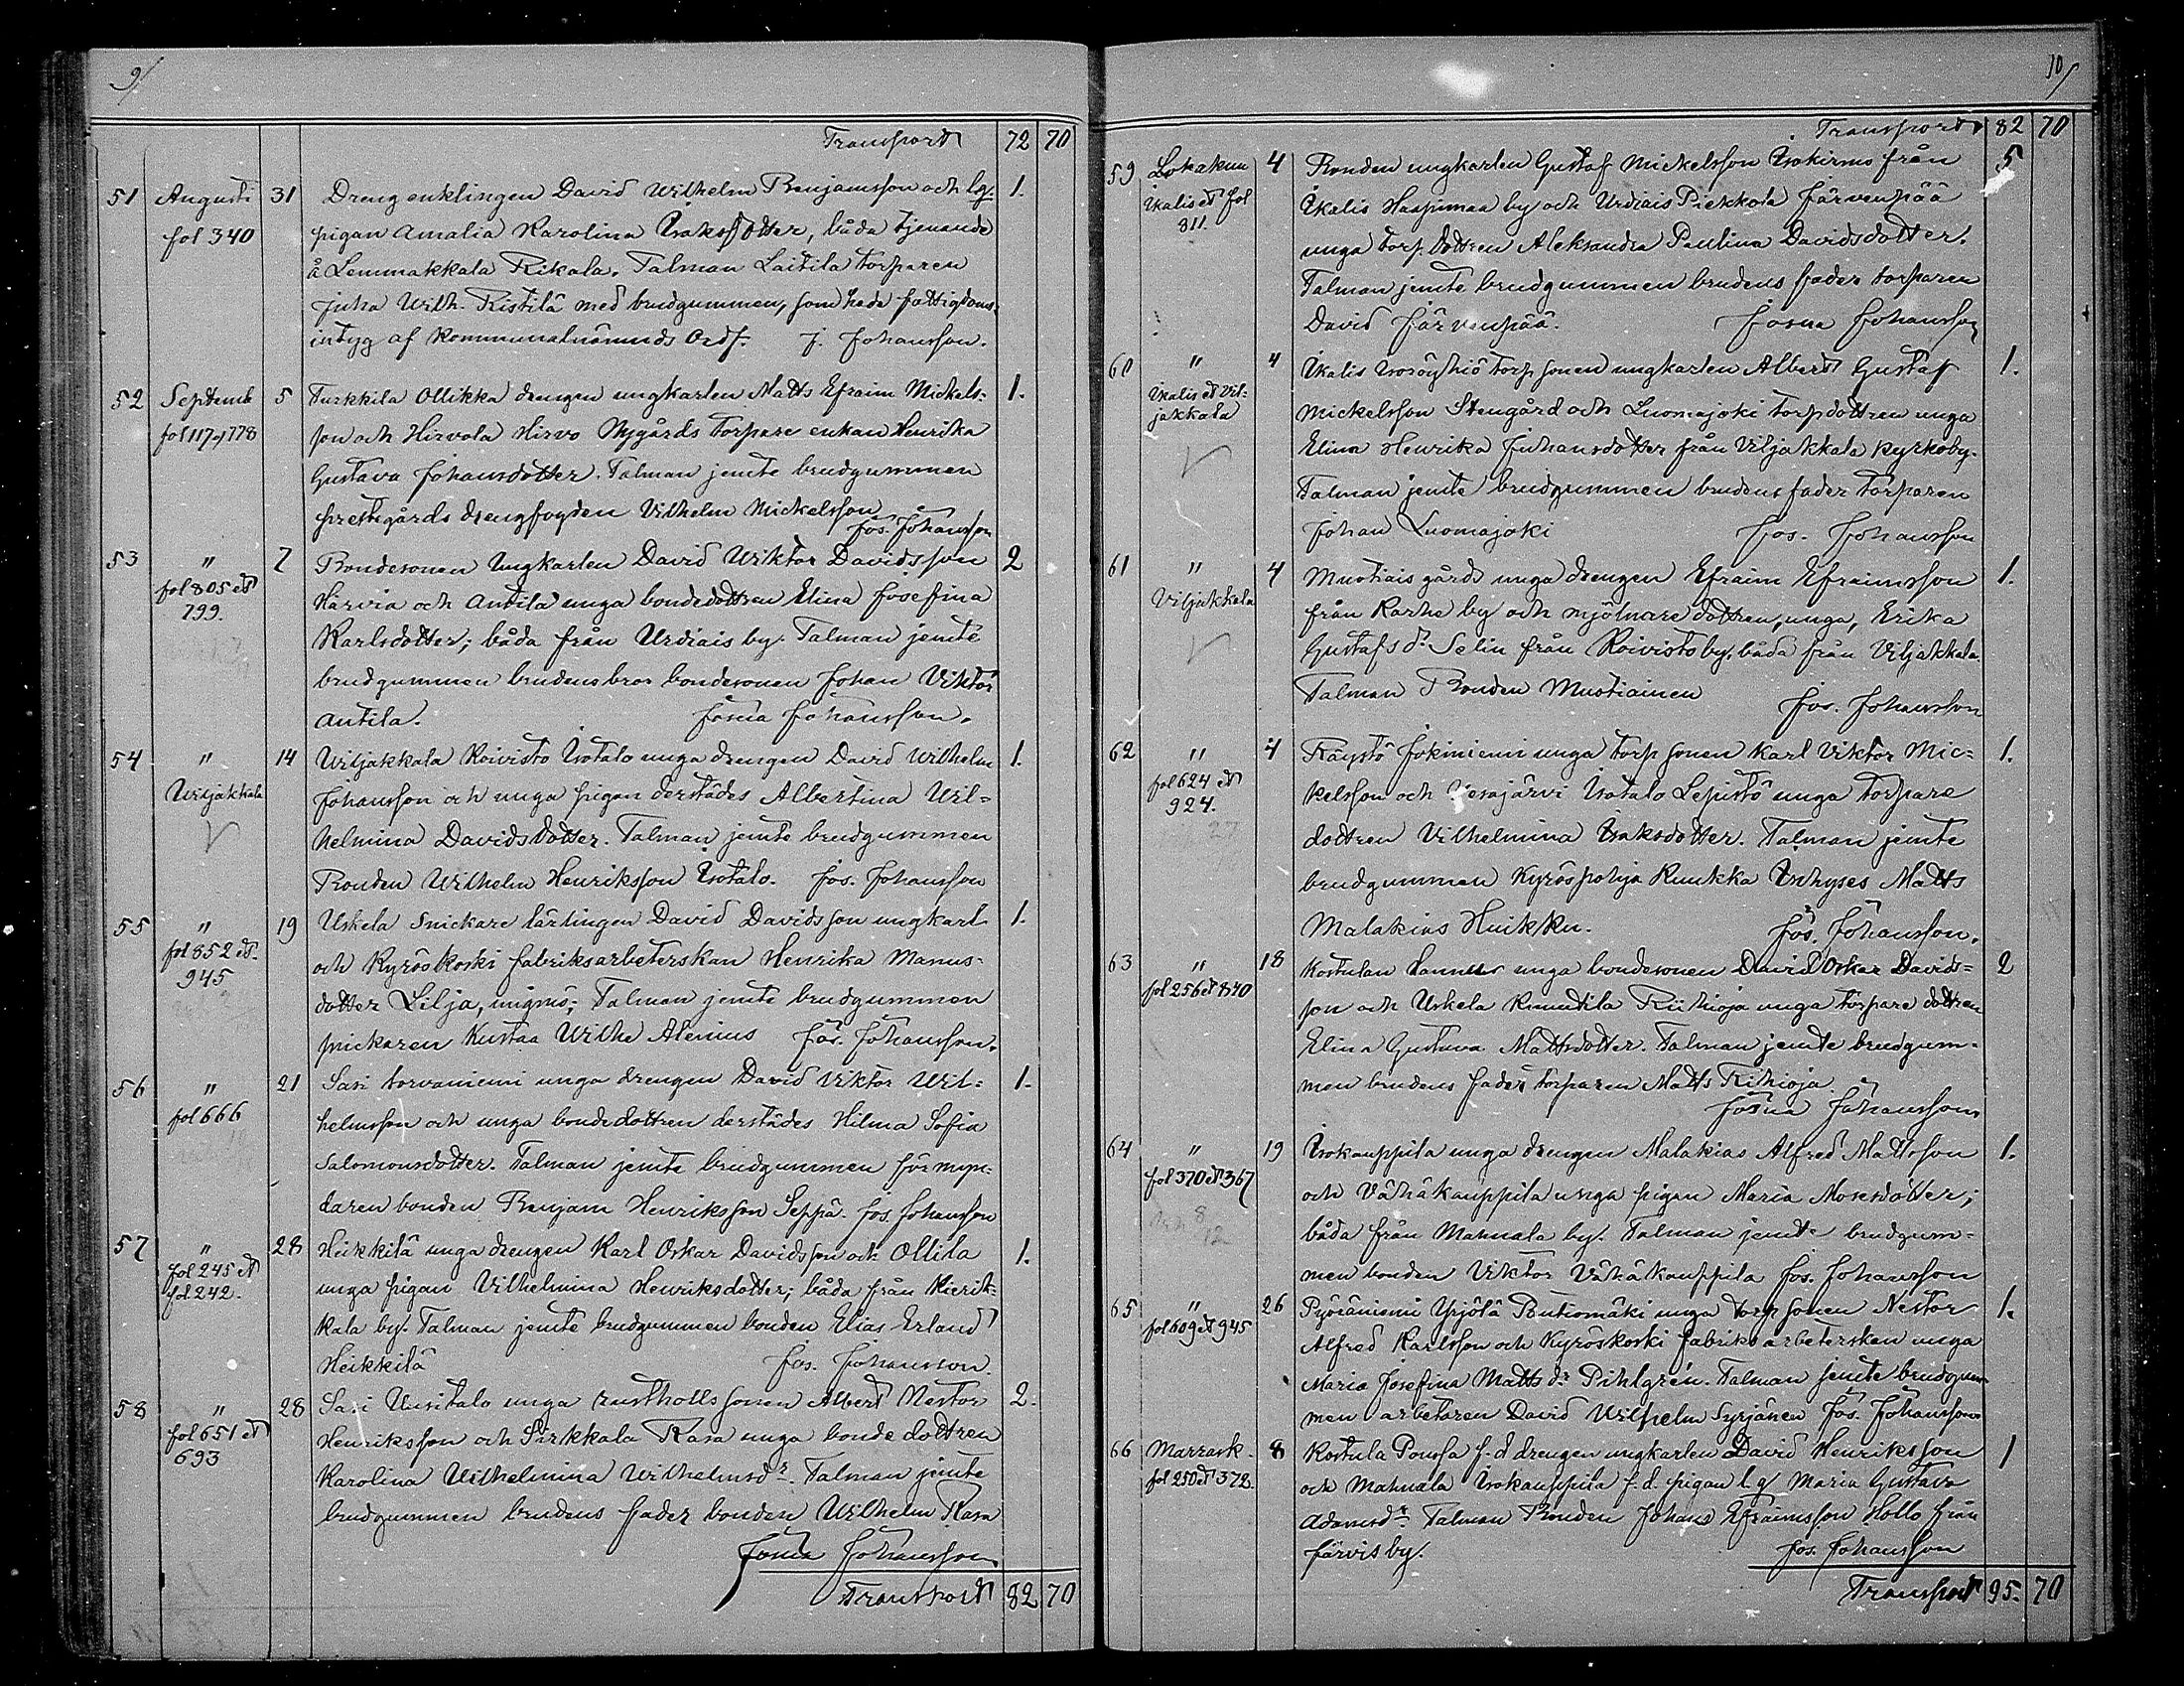 9/
Transport 72 70
51 Augusti 31 Drengenklingen David Wilhelm Benjamsson och lq. 1.
fol 340 pigan Amalia Karolina Isaksdotter, båda tjenande
å Lemmakkala Rikala. Talman Laitila torparen
Juha Wilh. Ristilä med brudgummen, som hade fattigdoms-
intyg af Kommunalnämnds Ordf. J. Johansson.
52 Septemb 5 Turkkila Ollikka drengen ungkarlen Matts Efraim Mickels- 1.
fol 117 of 778 son och Hirvola Hirvo Nygårds torpare enkan Henrika
Gustava Johansdotter. Talman jemte brudgummen
prestgårds drengfogden Vilhelm Mickelsson
Jos. Johansson
53 " 7 Bondesonen Ungkarlen David Wiktor Davidsson 2
fol 805 et Härviä och Antila unga bondedottren Elina Josefina
799. Karlsdotter; båda från Urdiais by. Talman jemte
brudgummen brudens bror bondesonen Johan Viktor
Antila. Josua Johansson.
54 " 14 Viljakkala Koivisto Isotalo unga drengen David Wilhelm 1.
Viljakkala Johansson och unga pigan derstädes Albertina Wil-
helmina Davidsdotter. Talman jemte brudgummen
Bonden Wilhelm Henriksson Isotalo. Jos. Johansson
55 " 19 Uskela Snickare lärlingen David Davidsson ungkarl 1.
fol 852 et och Kyröskoski fabriksarbeterskan Henrika Manus-
945 dotter Lilja, ungmö; Talman jemte brudgummen
snickaren Kustaa Wilhe Alenius Jos. Johansson.
56 " 21 Sasi torvaniemi unga drengen David Viktor Wil- 1.
fol 666 helmsson och unga bondedottren derstädes Hilma Sofia
Salomonsdotter. Talman jemte brudgummen förmyn-
daren bonden Benjam Henriksson Seppä. Jos. Johansson
57 " 28 Heikkilä unga drengen Karl Oskar Davidsson och Ollila 1.
fol 245 et unga pigan Vilhelmina Henriksdotter; båda från Kierik-
fol 242. kala by. Talman jemte brudgummen bonden Elias Erland
Heikkilä Jos. Johansson.
58 " 28 Sasi Uusitalo unga rusthollssonen Albert Nestor 2.
fol 651 et Henriksson och Sirkkala Rasa unga bonde dottren
693 Karolina Wilhelmina Wilhelmsdr. Talman jemte
brudgummen brudens fader bonden Wilhelm Rasa
Josua Johansson
Transport 82 70
10/
Transport 82 70
59 Lokakuu 4 Bonden ungkarlen Gustaf Mickelsson Isokirmo från 5
Ikalis et fol Ikalis Haapimaa by och Urdiais Piekkola Järvenpää
811. unga torp. dottren Aleksandra Paulina Davidsdotter.
Talman jemte brudgummen brudens fader torparen
David Järvenpää. Josua Johansson
60 " 4 Ikalis Isoröyhiö torp sonen ungkarlen Albert Gustaf 1.
Ikalis et Vil- Mickelsson Stengård och Luomajoki torpdottren unga
jakkala Elina Henrika Juhansdotter från Viljakkala kyrkoby.
Talman jemte brudgummen brudens fader torparen
Johan Luomajoki Jos. Johansson
61 " 4 Mustiais gårds unga drengen Efraim Efraimsson 1.
Viljakkala från Karhe by och mjölnare dottren, unga, Erika
Gustafs dr. Selin från Koivisto by, båda från Viljakkala.
Talman Bonden Mustiainen Jos. Johansson
62 " 4 Räystö Jokiniemi unga torp sonen Karl Viktor Mic- 1.
fol 624 et kelsson och Vesajärvi Isotalo Lepistö unga torpare
924. dottren Vilhelmina Isaksdotter. Talman jemte
brudgummen Kyröspohja Ruukka Inhyses Matts
Malakias Huikku. Jos. Johansson.
63 " 18 Kostulan Hannus unga bondesonen David Oskar Davids- 2
fol 256 et 840 son och Uskela Knuutila Riihioja unga torpare dottren
Elina Gustava Mattsdotter. Talman jemte brudgum-
men brudens fader torparen Matts Riihioja
Josua Johansson
64 " 19 Isokauppila unga drengen Malakias Alfred Mattsson 1.
fol 370 et 367 och Vähäkauppila unga pigan Maria Mosesdotter;
båda från Mahnala by. Talman jemte brudgum-
men bonden Viktor Vähäkauppila Jos. Johansson
65 " 26 Pyöräniemi Yrjölä Putiomäki unga torp sonen Nestor 1.
fol 609 et 945 Alfred Karlsson och Kyröskoski fabriksarbeterskan unga
Maria Josefina Matts dr. Pihlgrén. Talman jemte brudgum-
men arbetaren David Wilhelm Syrjänen Jos. Johansson
66 Marrask. 8 Kostula Ponsa f. d drengen ungkarlen David Henriksson 1
fol 250 et 372. och Mahnala Isokauppila f. d. pigan lq Maria Gustava
Adamsdr. Talman Bonden Johans Efraimsson Hollo från
Järvis by. Jos. Johansson
Transport 95. 70